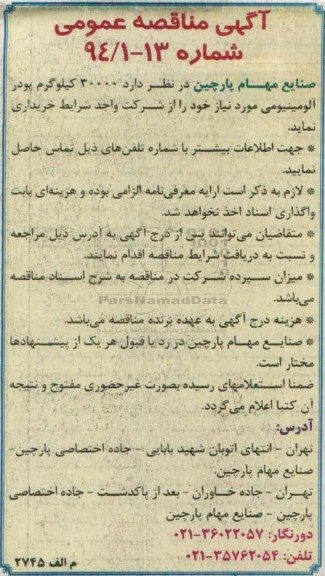 آگهی مناقصه عمومی
شماره ۱۳-۹۴/۱
صنایع مهام پارچین در نظر دارد ۳۰۰۰۰ کیلوگرم پودر
آلومینیومی مورد نیاز خود را از شرکت واجد شرایط خریداری
نماید.
* جهت اطلاعات بیشتر با شماره تلفن‌های ذیل تماس حاصل
نمایید.
* لازم به ذکر است ارایه معرفی‌نامه الزامی بوده و هزینه‌ای بابت
واگذاری اسناد اخذ نخواهد شد.
* متقاضیان می‌توانند پس از درج آگهی به آدرس ذیل مراجعه
و نسبت به دریافت شرایط مناقصه اقدام نمایند.
* میزان سپرده شرکت در مناقصه به شرح اسناد مناقصه
ParsNamadData
می‌باشد.
* هزینه درج آگهی به عهده برنده مناقصه می‌باشد.
* صنایع مهام پارچین در رد یا قبول هر یک از پیشنهادها
مختار است.
ضمنا استعلامهای رسیده بصورت غیرحضوری مفتوح و نتیجه
آن کتبا اعلام می‌گردد.
آدرس:
تهران - انتهای اتوبان شهید بابایی - جاده اختصاصی پارچین-
صنایع مهام پارچین.
تهران - جاده خاوران - بعد از پاکدشت - جاده اختصاصی
پارچین - صنایع مهام پارچین
دورنگار: ۳۶۰۲۲۰۵۷-۰۲۱
تلفن: ۳۵۷۶۲۰۵۴-۰۲۱
م الف ۲۷۴۵